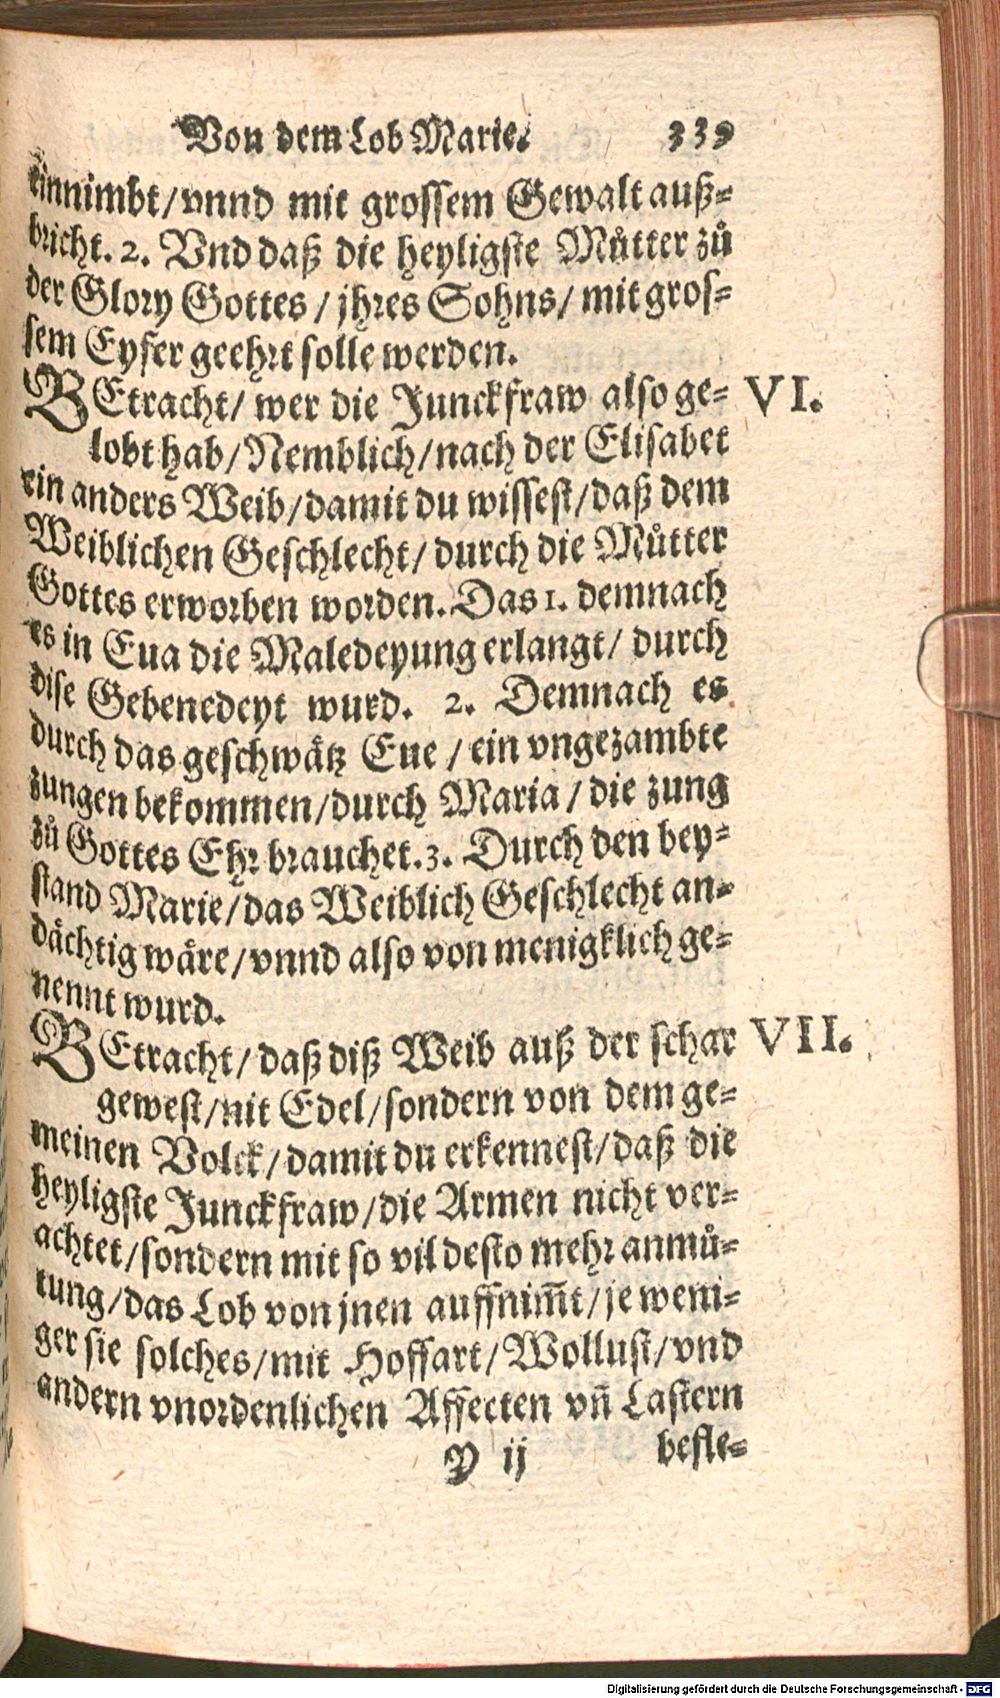 Von dem Lob Marie. 339
einnimbt/vnnd mit grossem Gewalt auß-
bricht. 2. Vnd daß die heyligste Můtter zů
der Glory Gottes / jhres Sohns/ mit gros-
sem Eyfer geehrt solle werden.
BEtracht/ wer die Junckfraw also ge- VI.
lobt hab/Nemblich/nach der Elisabet
ein anders Weib/damit du wissest/daß dem
Weiblichen Geschlecht/ durch die Můtter
Gottes erworben worden. Das 1. demnach
es in Eua die Maledeyung erlangt/ durch
dise Gebenedeyt wurd. 2. Demnach es
durch das geschwätz Eue / ein vngezambte
zungen bekommen/durch Maria / die zung
zů Gottes Ehr brauchet. 3. Durch den bey-
stand Marie/das Weiblich Geschlecht an-
dächtig wäre/vnnd also von menigklich ge-
nennt wurd.
BEtracht/daß diß Weib auß der schar VII.
gewest/nit Edel/sondern von dem ge-
meinen Volck/damit du erkennest/daß die
heyligste Junckfraw/die Armen nicht ver-
achtet/sondern mit so vil desto mehr anmů-
tung/das Lob von jnen auffnim̃t/je weni-
ger sie solches/mit Hoffart/Wollust/vnd
andern vnordenlichen Affecten vñ Lastern
Y ij befle-
Digitalisierung gefördert durch die Deutsche Forschungsgemeinschaft - DFG